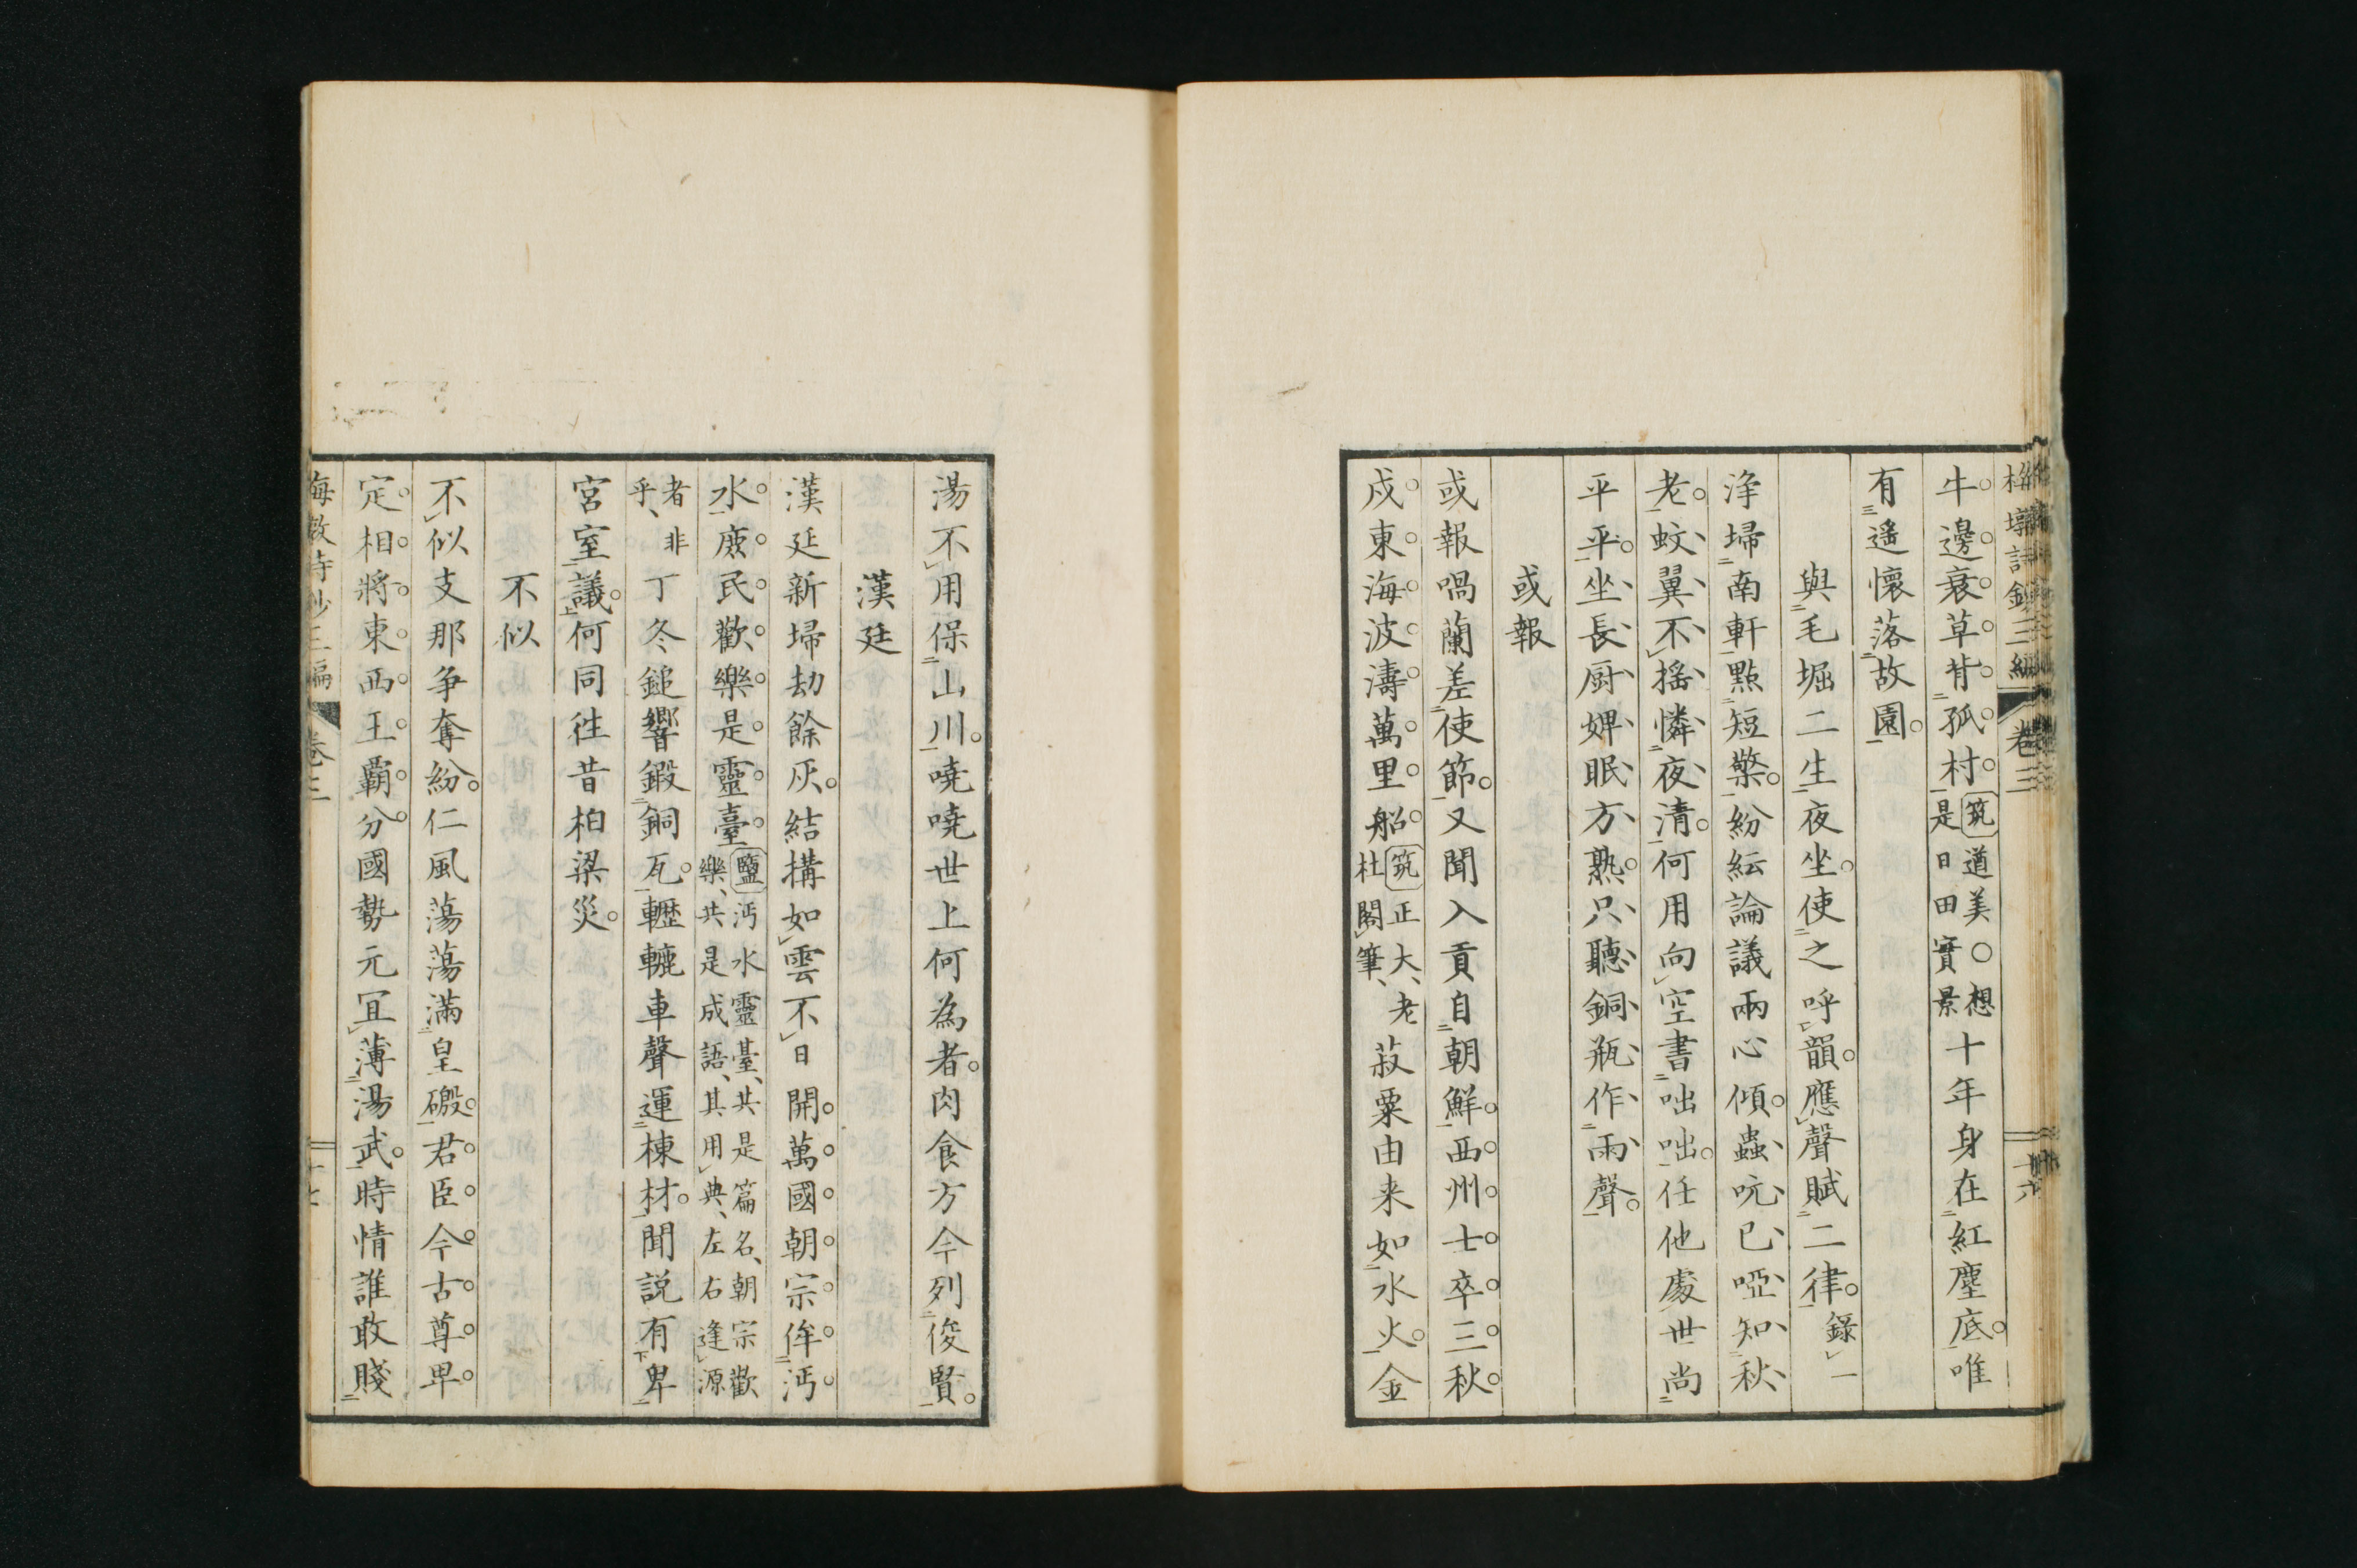 梅墩詩鈔三編 卷三 十六
牛邊衰草背孤村筑道美○想是日田實景十年身在紅塵底唯
有遙懷落故園
與毛堀二生夜坐使之呼韻應聲賦二律錄一
淨埽南軒點短檠紛紜論議兩心傾蟲吭已啞知秋
老蚊翼不搖憐夜清何用向空書咄咄任他處世尚
平平坐長厨婢眠方熟只聽銅瓶作雨聲
或報
或報喎蘭差使節又聞入貢自朝鮮西州士卒三秋
戍東海波濤萬里船筑正大老杜閣筆菽粟由来如水火金
湯不用保山川嘵嘵世上何為者肉食方今列俊賢
漢廷
漢廷新埽劫餘灰結搆如雲不日開萬國朝宗侔沔
水庶民歡樂是靈臺鹽沔水靈臺共是篇名朝宗歡樂共是成語其用典左右逢源
者非乎丁冬鎚響鍛銅瓦轣轆車聲運棟材聞説有卑
宮室議何同徃昔柏梁災
不似
不似支那爭奪紛仁風蕩蕩滿皇磤君臣今古尊卑
定相將東西王覇分國勢元冝薄湯武時情誰敢賤
卷三